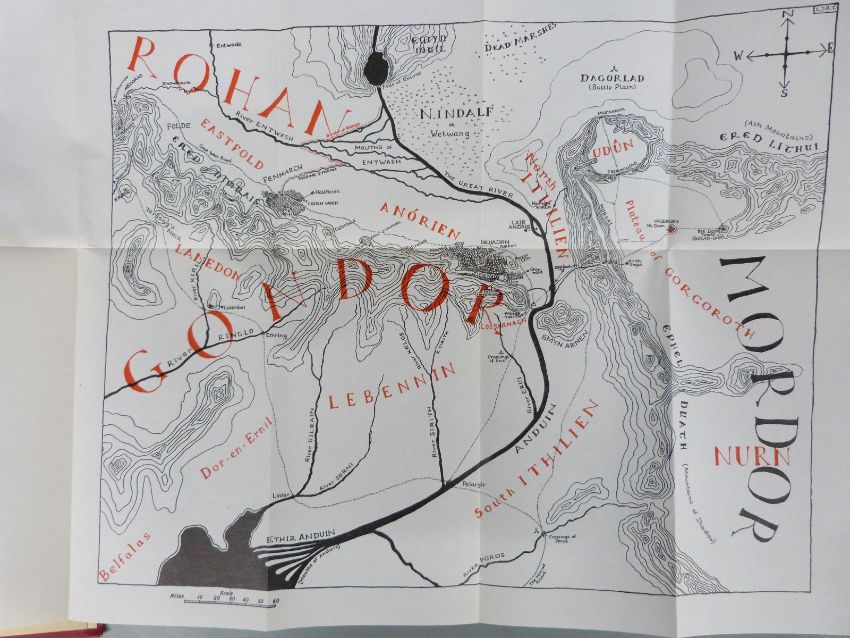 ROHAN
Entwade
EMYN
MUIL
DEAD MARSHES
N
W
E
S
DAGORLAD
(Battle Plain)
NINDALF
or
Wetwang
(Ash Mountains)
ERED LITHUI
UDÛN
FOLDE
EASTFOLD
RIVER ENTWASH
MOUTHS OF
ENTWASH
FENMARCH
ERED NIMRAIS
THE GREAT RIVER
North
ITHILIEN
ANÓRIEN
CAIR
ANDROS
Plateau of GORGOROTH
LAMEDON
GONDOR
MORDOR
Calembel
Ethring
RIVER RINGLO
Lossarnach
EMYN ARNEN
EPHEL DÚATH
(Mountains of Shadow)
LEBENNIN
River GILRAIN
River SERNI
River SIRITH
River ERUI
Crossings
of Erui
ANDUIN
Dor-en-Ernil
Linhir
Pelargir
South ITHILIEN
NURN
ETHIR ANDUIN
Belfalas
River POROS
Crossings of
Poros
Miles
Scale
10 20 30 40 50 60